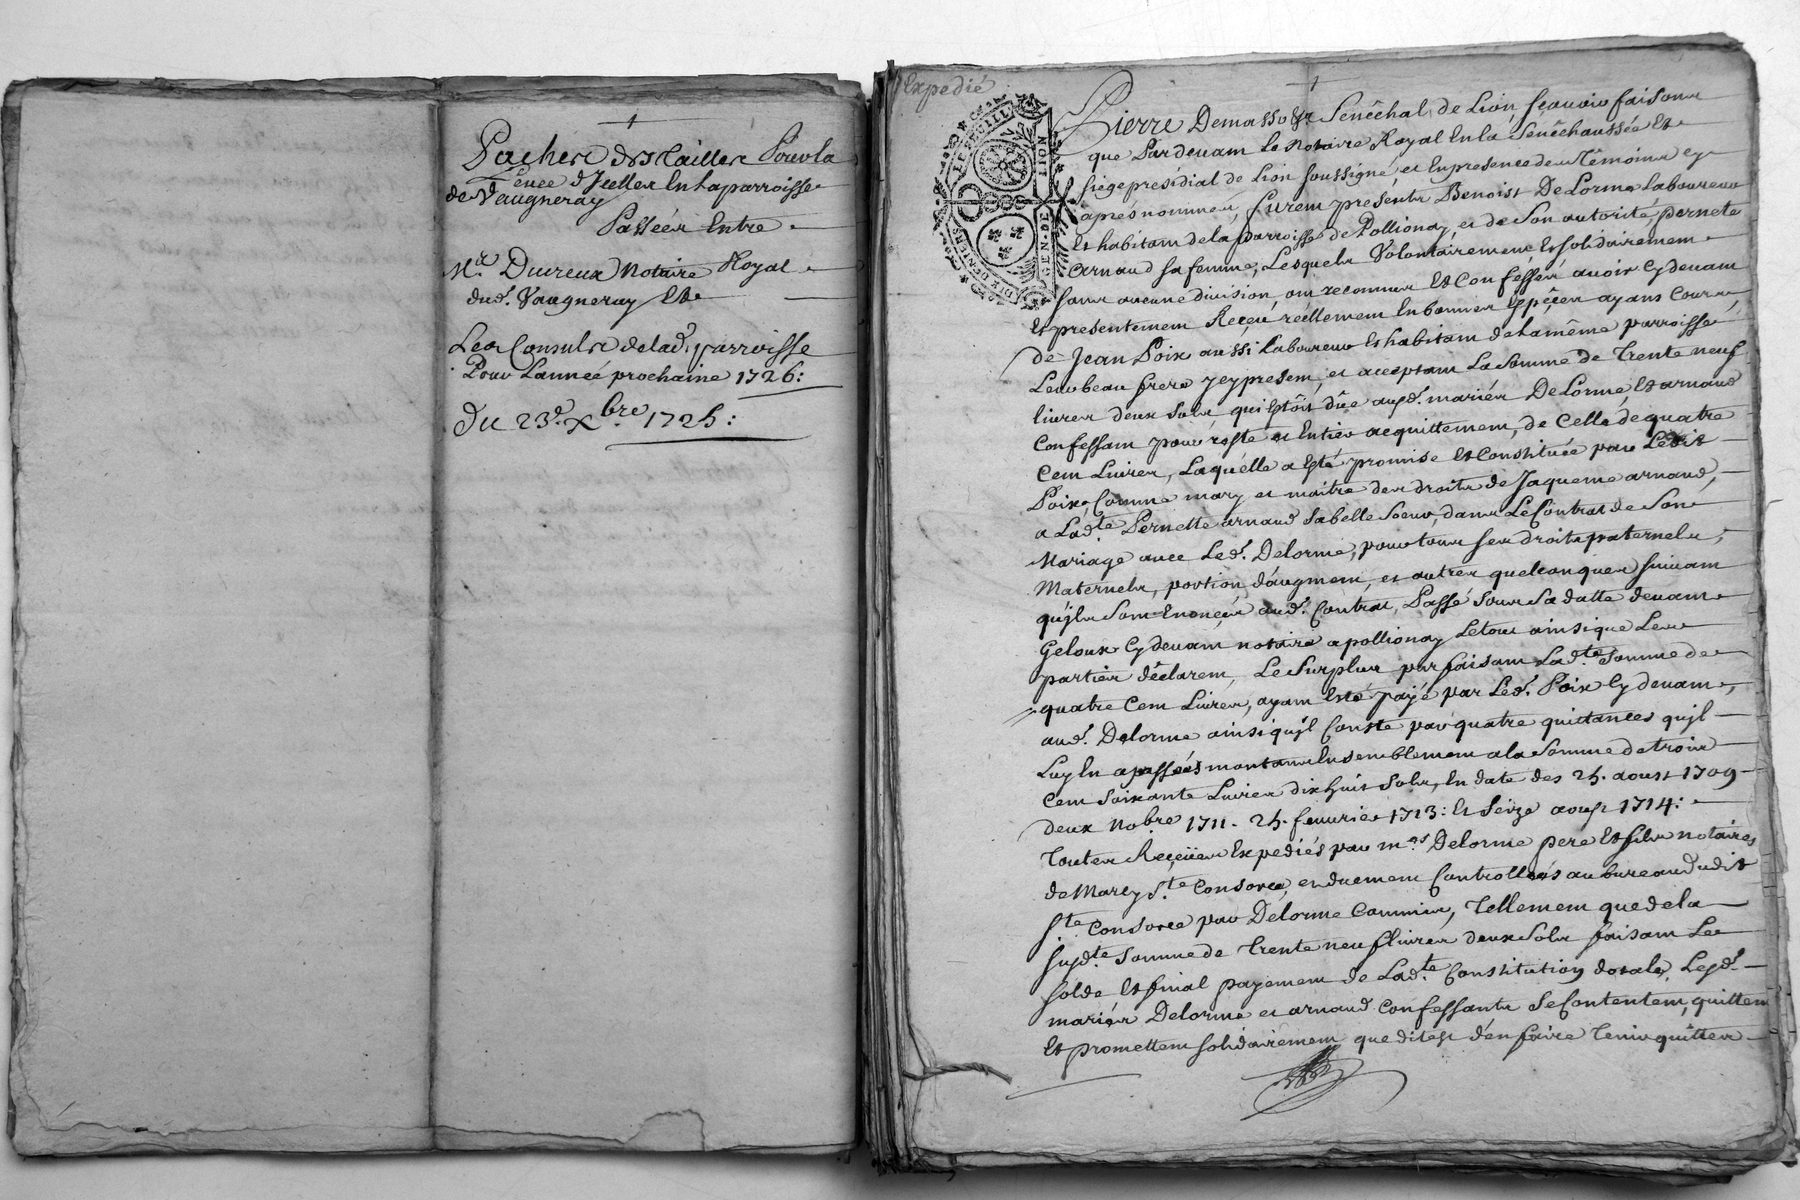 Paches des Tailles Pour la
Levée d'Jcelles En la parroisse
de Vaugneray
Passées Entre
Mr. Duireux Notaire Royal
dud. Vaugneray Et
Les Consuls de lad. parroisse
Pour L'année prochaine 1726:
Du 23e. Xbre. 1725:
Expedié
DIX DENIERS LE FEUILL
GEN. DE LION
Pierre Demasso Sgr Senêchal de Lion sçauoir faisons
que Pardeuam Le Notaire Royal En la Senêchaussée Et
siege presidial de Lion soussigné et En presence deux têmoins cy
apres nommés, furem présents Benoist DeLorme Laboureur
Et habitam de la parroisse de Pollionay, et de son autorité pernete
arnaud sa femme, Lesquels Volontairement Et solidairemem
sans aucune division, om reconnus Et Confessés auoir cy deuam
Et presentemem Reçeu réellemem En bonnes Espêces ayans Cours
de Jean Poix aussi Laboureur Et habitam de la même parroisse
Leur beau frere jcy presem, et acceptam La somme de Trente neuf
liures deux sols qui Etôit dûe ausd. mariés DeLorme, Et arnaud
Confessam pour reste et Entier acquittemem, de Celle de quatre
Cem Liures, Laquelle a Esté promise Et Constituée par Ledit
Poix, Comme mary et maitre des droits de Jaqueme arnaud,
a Ladte. Pernette arnaud sa belle soeur, dans Le Contrat de son
Mariage auec Led. Delorme, pour tous ses droits paternels,
Maternels, portion d'augmem, et autres quelconques suiuam
qu'jls som Enoncés aud. Contrat, Passé sous sa datte deuam
Geloux Cy deuam notaire a pollionay Le tout ainsi que Les
parties dêclarem, Le surplus parfaisam Ladte. somme de
quatre Cem Liures, ayam Esté payé par Led. Poix Cy deuam,
aud. Delorme ainsi qu'jl Conste par quatre quittances qu'jl
Luy En a passées montans Ensemblemem a la somme de trois
Cem soixante Liures dix huit sols, En date des 25. aoust 1709
deux Nobre 1711. 25. feurier 1713: Et seize aoust 1714:
Toutes Reçües Expediés par mes Delorme pere Et fils notaires
de Marcy Ste Consorce, et duemem Controllées au bureau dudit
Ste Consorce par Delorme Commis, Tellemem que de la
susdte. somme de Trente neuf liures deux sols faisam Le
solde Et final payemem de Ladte. Constitution dotale, Lesd.
mariés Delorme et arnaud Confessants se Contentem, quittem
Et promettem solidairemem que ditest d'en faire Tenir quittes